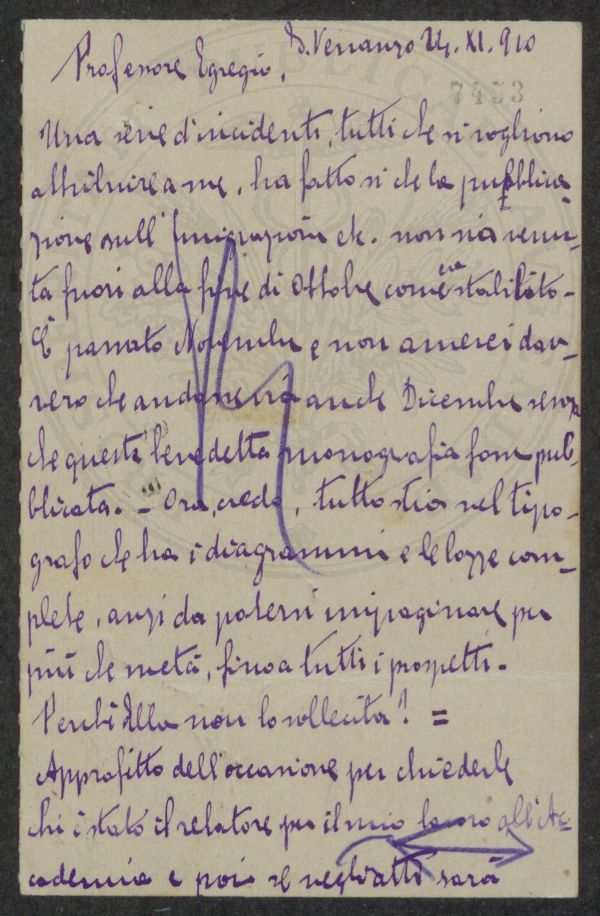 S. Venanzo 24. XI. 910
Professore Egregio,
7453
Una serie d'incidenti, tutti che si vogliono
attribuire a me, ha fatto sì che la pubblica
zione sull'Immigrazione etc. non sia venu-
ta fuori alla fine di Ottobre come era stabilito -
È passato Novembre e non amerei dav-
vero che andasse via anche Dicembre senza
che questa benedetta monografia fosse pub-
blicata. - Ora, credo, tutto stia nel tipo-
grafo che ha i diagrammi e le bozze com-
plete, anzi da potersi impaginare per
più che metà, fino a tutti i prospetti -
Perchè Ella non lo sollecita! =
Approfitto dell'occasione per chiederle
chi è stato il relatore per il mio lavoro all'Ac-
cademia e poi se negli atti sarà